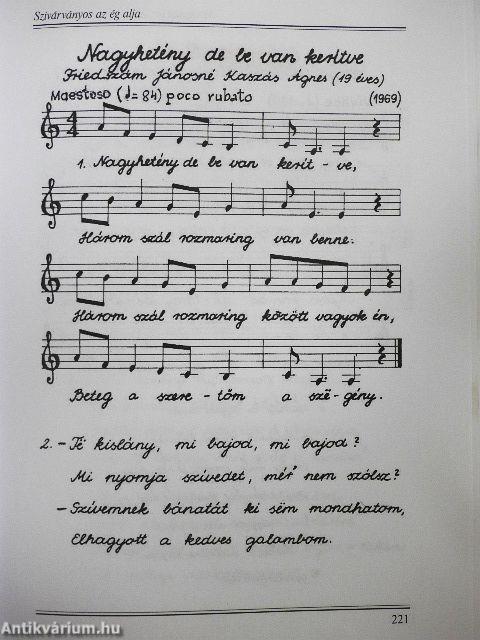 Szivárványos az ég alja
Nagyhetény de be van kerítve
Friedszám Jánosné Kaszás Ágnes (19 éves)
Maestoso (♩= 84) poco rubato (1969)
1. Nagyhetény de be van kerít - ve,
Három szál rozmaring van benne.
Három szál rozmaring között vagyok én,
Beteg a szere - tőm a szë - gény.
2. - Të kislány, mi bajod, mi bajod?
Mi nyomja szívedet, mér nem szólsz?
- Szívemnek bánatát ki sëm mondhatom,
Elhagyott a kedves galambom.
221
Antikvárium.hu